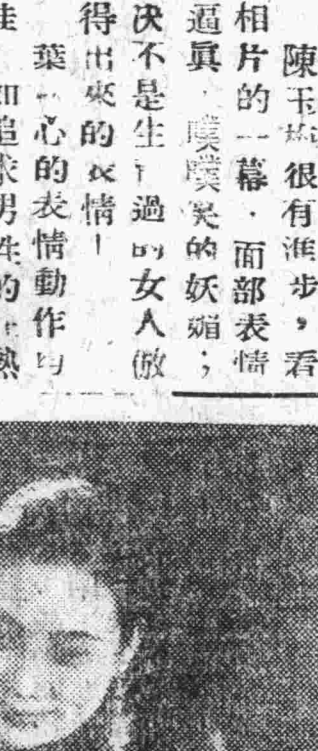 陳玉梅很有進步，看
相片的一幕．面部表情
逼眞．噗噗笑的妖媚；
决不是生 過的女人做
得出來的表情！
葉一心的表情動作均
如追求男性的 熱
佳